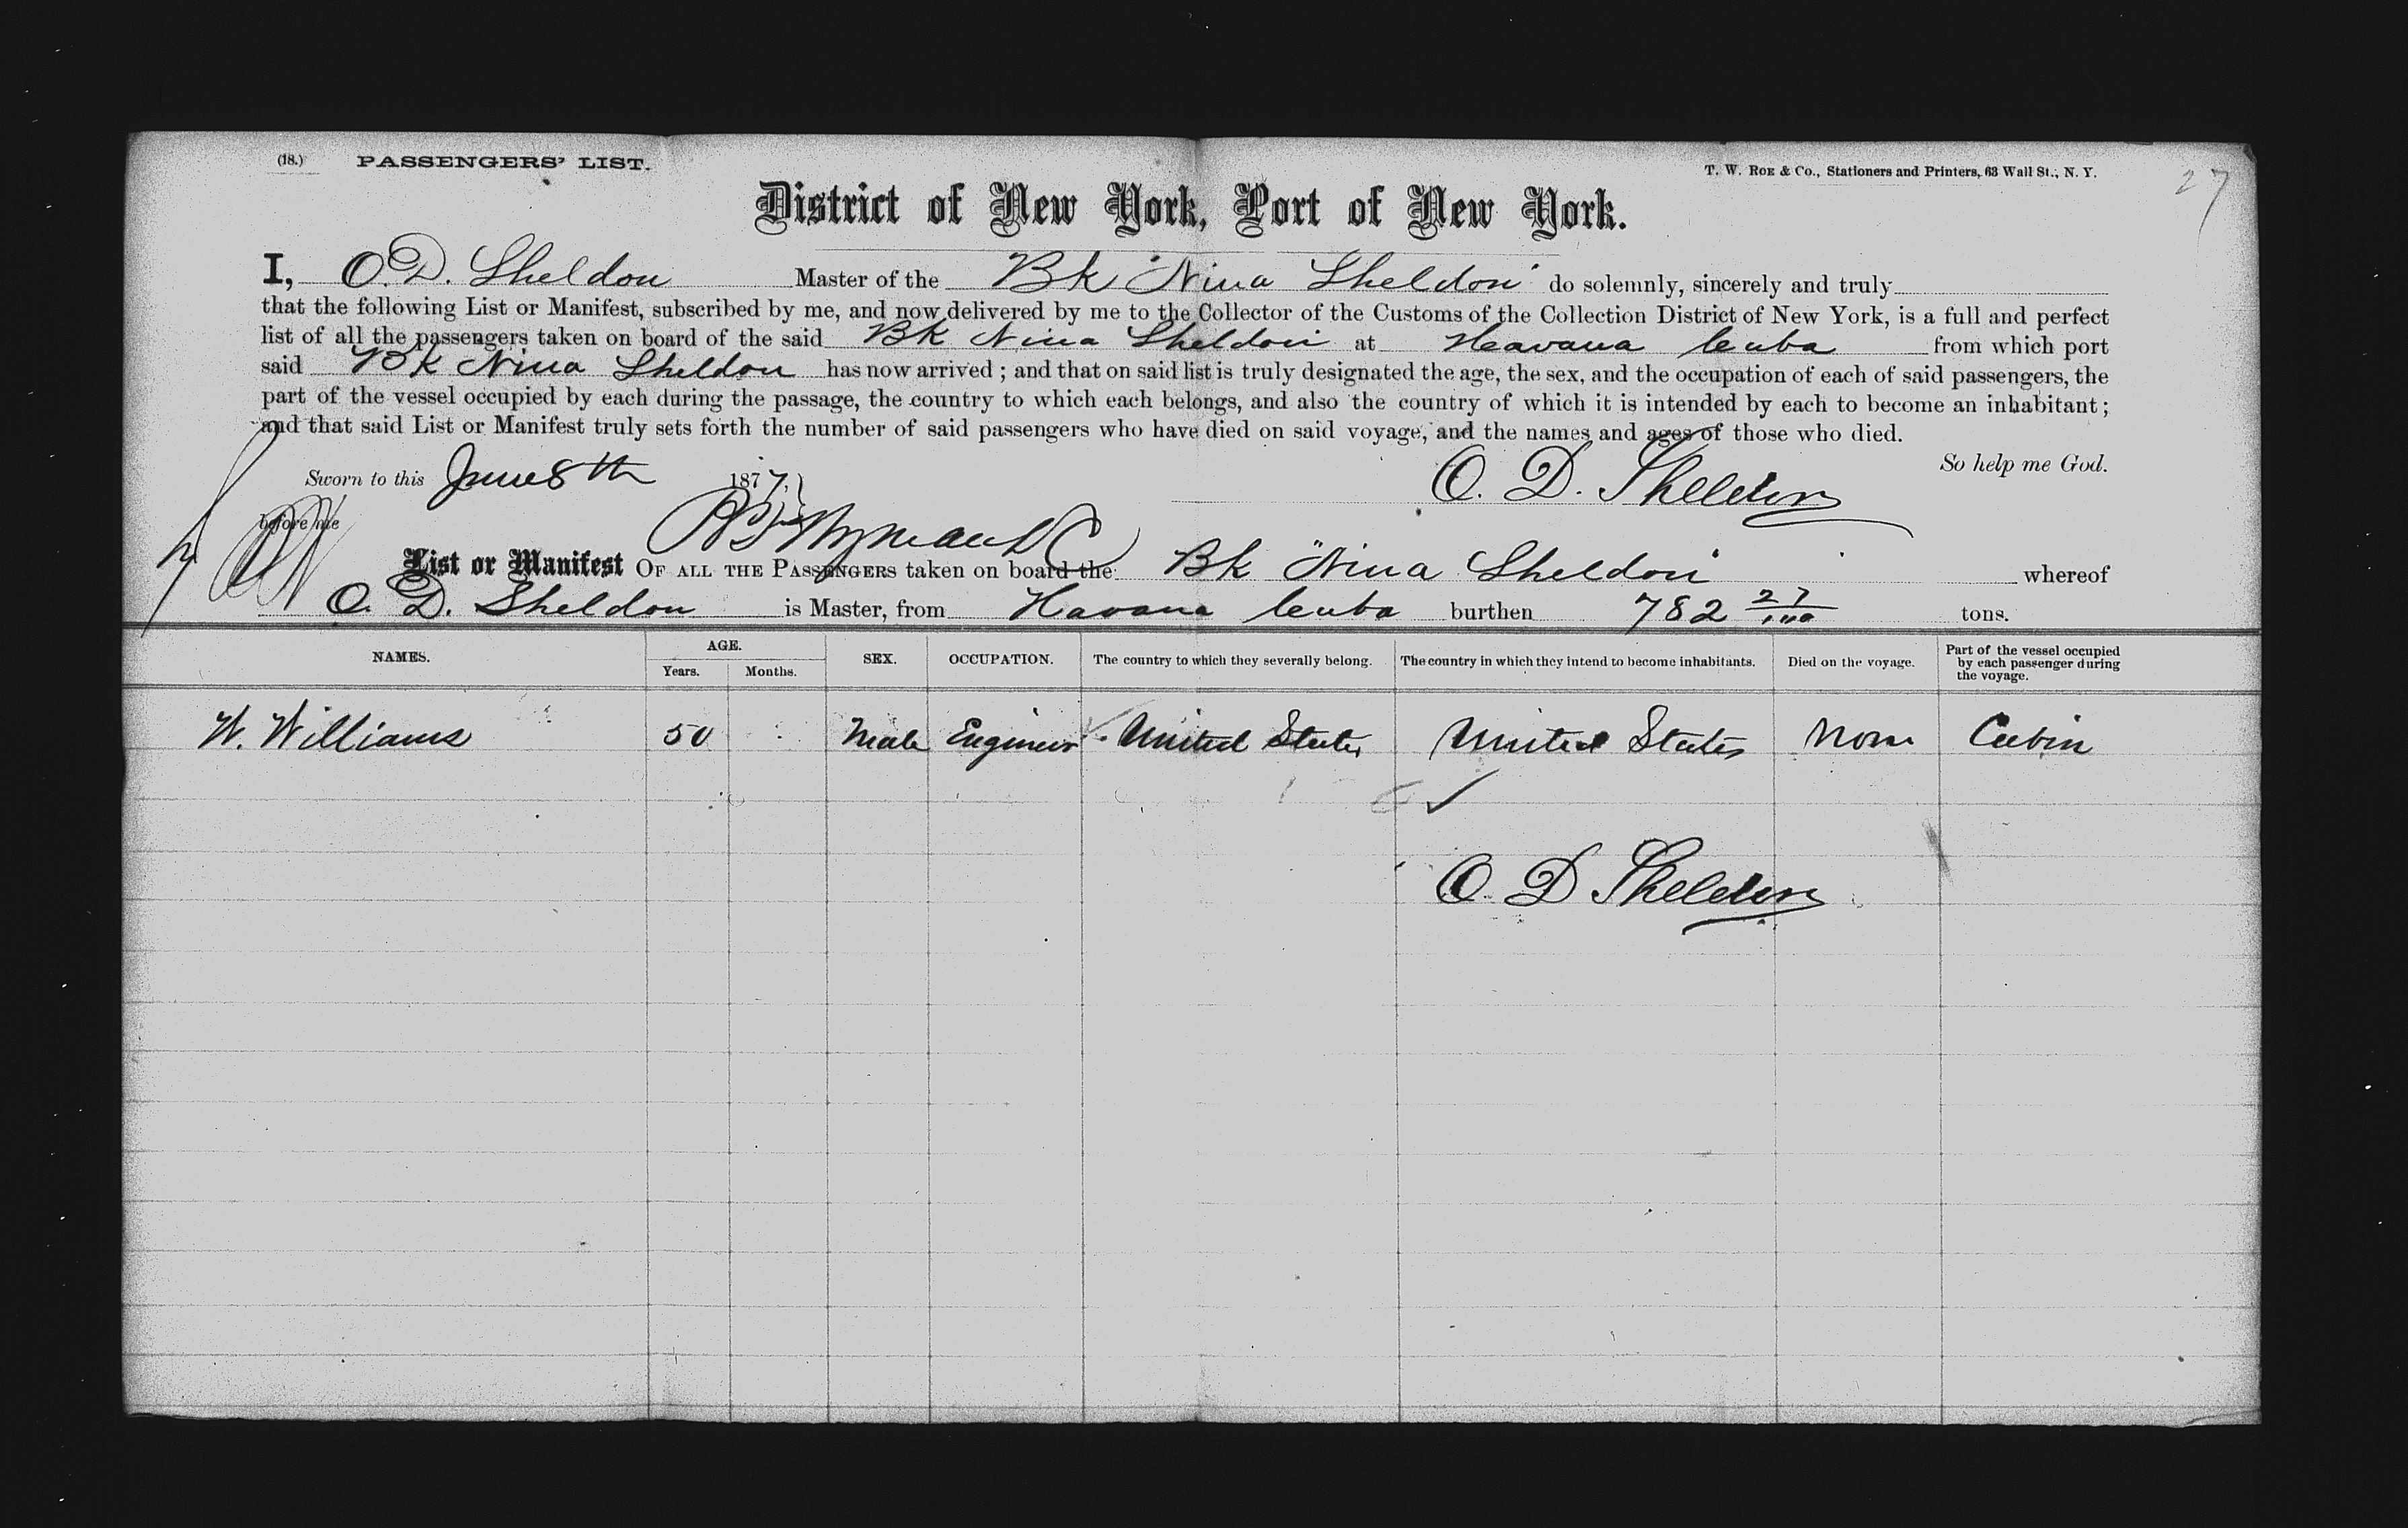 (18.) PASSENGERS' LIST.
T. W. ROE & Co., Stationers and Printers, 63 Wall St., N. Y.
27
District of New York, Port of New York.
I, O. D. Sheldon Master of the Bk "Nina Sheldon" do solemnly, sincerely and truly
that the following List or Manifest, subscribed by me, and now delivered by me to the Collector of the Customs of the Collection District of New York, is a full and perfect
list of all the passengers taken on board of the said Bk Nina Sheldon at Havana Cuba from which port
said Bk Nina Sheldon has now arrived ; and that on said list is truly designated the age, the sex, and the occupation of each of said passengers, the
part of the vessel occupied by each during the passage, the country to which each belongs, and also the country of which it is intended by each to become an inhabitant ;
and that said List or Manifest truly sets forth the number of said passengers who have died on said voyage, and the names and ages of those who died.
So help me God.
Sworn to this June 8th 1877,
O. D. Sheldon
before me
List or Manifest OF ALL THE PASSENGERS taken on board the Bk "Nina Sheldon" whereof
O. D. Sheldon is Master, from Havana Cuba burthen 782 27/100 tons.
NAMES. AGE. Years. Months. SEX. OCCUPATION. The country to which they severally belong. The country in which they intend to become inhabitants. Died on the voyage. Part of the vessel occupied by each passenger during the voyage.
W. Williams 50 Male Engineer United States United States None Cabin
O. D Sheldon